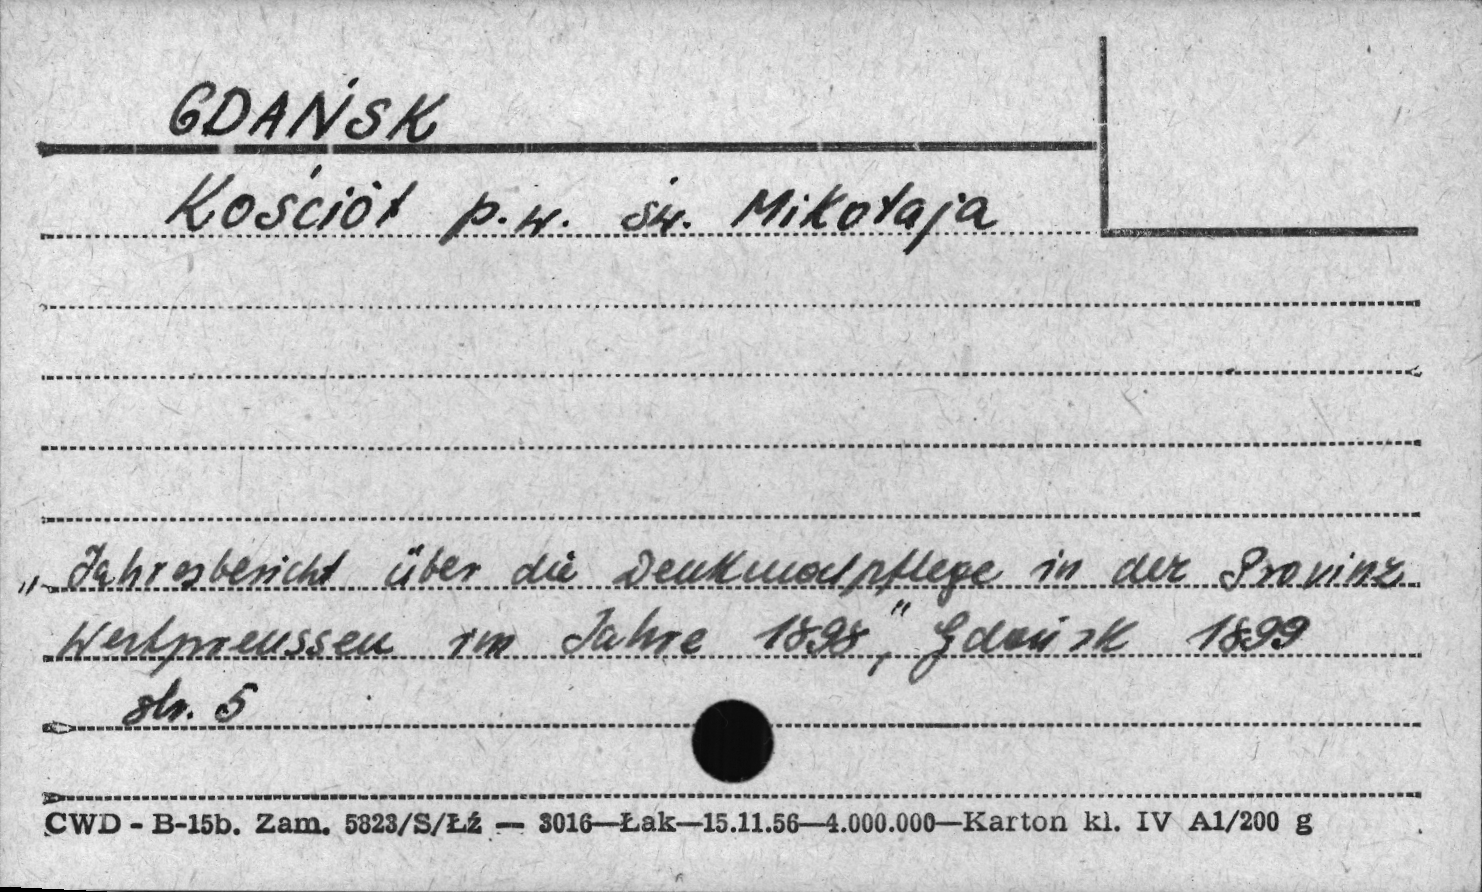 GDAŃSK
Kościół p.w. św. Mikołaja
„Jahresbericht über die Denkmalpflege in der Provinz
Westpreussen im Jahre 1898", Gdańsk 1899
str. 5
CWD - B-15b. Zam. 5823/S/Łź — 3016—Łak—15.11.56—4.000.000—Karton kl. IV A1/200 g